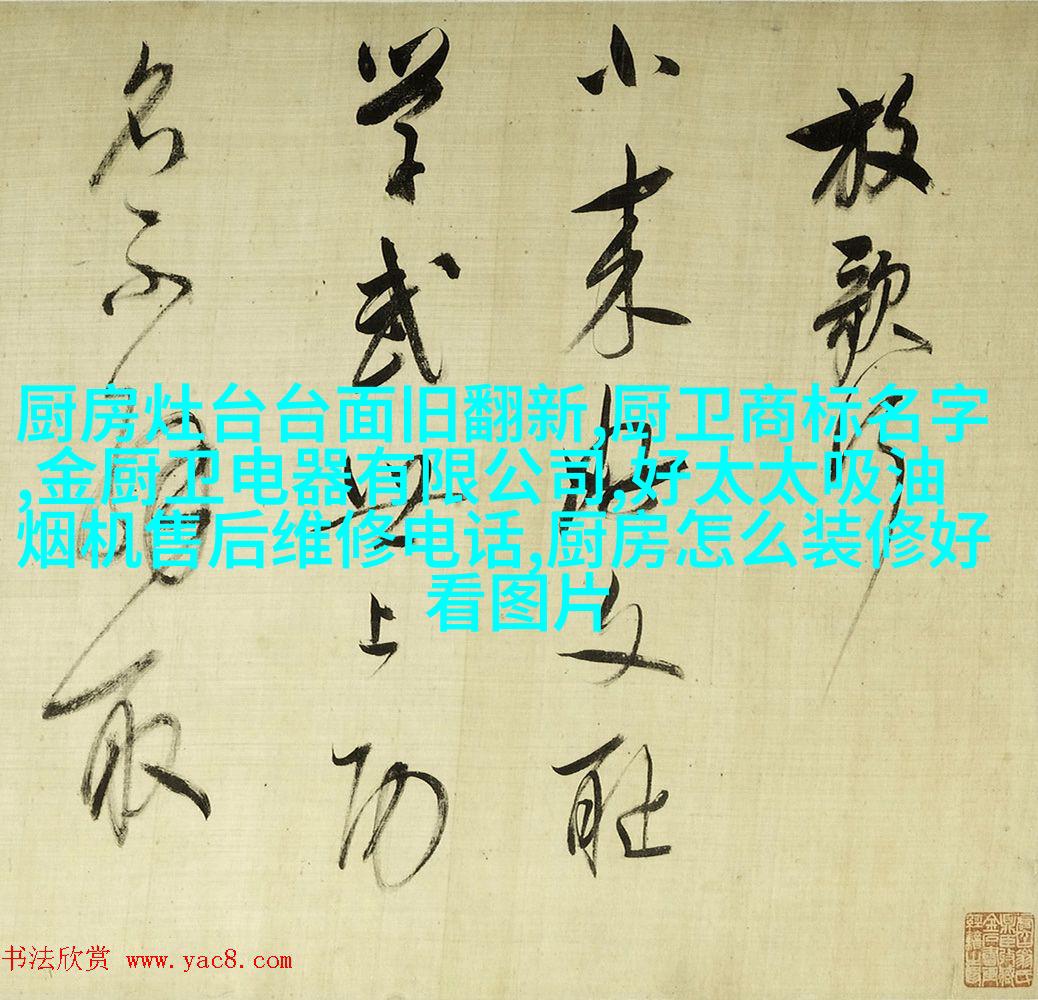 放歌行
小来好文耻
学武世上功
名不解取
厨房灶台台面旧翻新,厨卫商标名字
,金厨卫电器有限公司,好太太吸油
烟机售后维修电话,厨房怎么装修好
看图片
书法欣赏 www.yac8.com